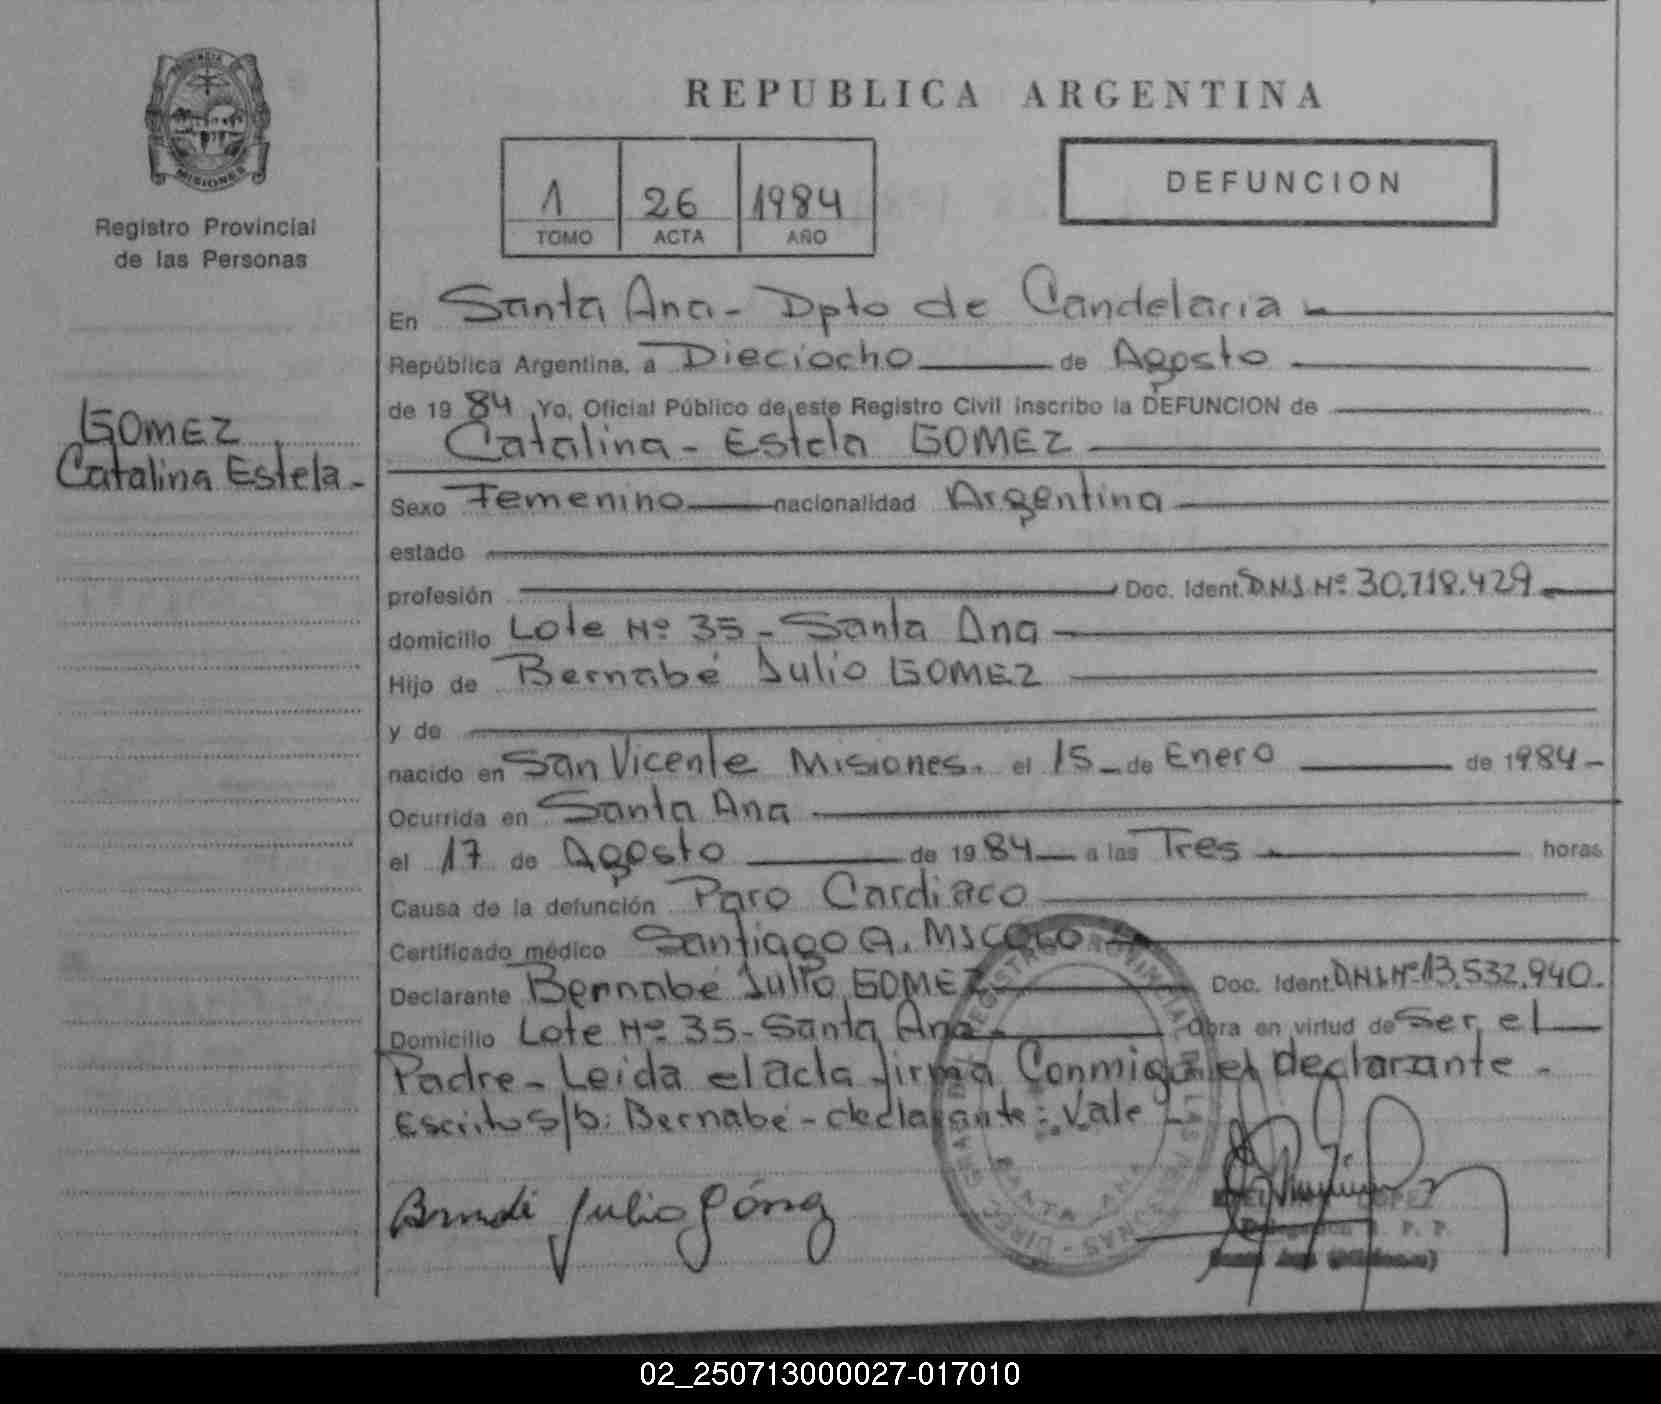 PROVINCIA
MISIONES
Registro Provincial
de las Personas
GOMEZ
Catalina Estela -
REPUBLICA ARGENTINA
1 26 1984
TOMO ACTA AÑO
DEFUNCION
En Santa Ana - Dpto de Candelaria
República Argentina, a Dieciocho de Agosto
de 1984, Yo, Oficial Público de este Registro Civil inscribo la DEFUNCION de
Catalina - Estela GOMEZ
Sexo Femenino nacionalidad Argentina
estado
profesión Doc. Ident. D.N.I Nº 30.718.429
domicilio Lote Nº 35 - Santa Ana
Hijo de Bernabé Julio GOMEZ
y de
nacido en San Vicente Misiones. el 15 - de Enero de 1984 -
Ocurrida en Santa Ana
el 17 de Agosto de 1984 a las Tres horas
Causa de la defunción Paro Cardiaco
Certificado médico Santiago A.
Declarante Bernabé Julio GOMEZ Doc. Ident. D.N.I Nº 13.532.940.
Domicilio Lote Nº 35 - Santa Ana - Obra en virtud de Ser el
Padre - Leida el acta firma Conmigo el declarante -
Escrito s/b: Bernabé - declarante: Vale
Julio Gómez
REGISTRO PROVINCIAL DE LAS PERSONAS
SANTA ANA
LOPEZ
02_250713000027-017010